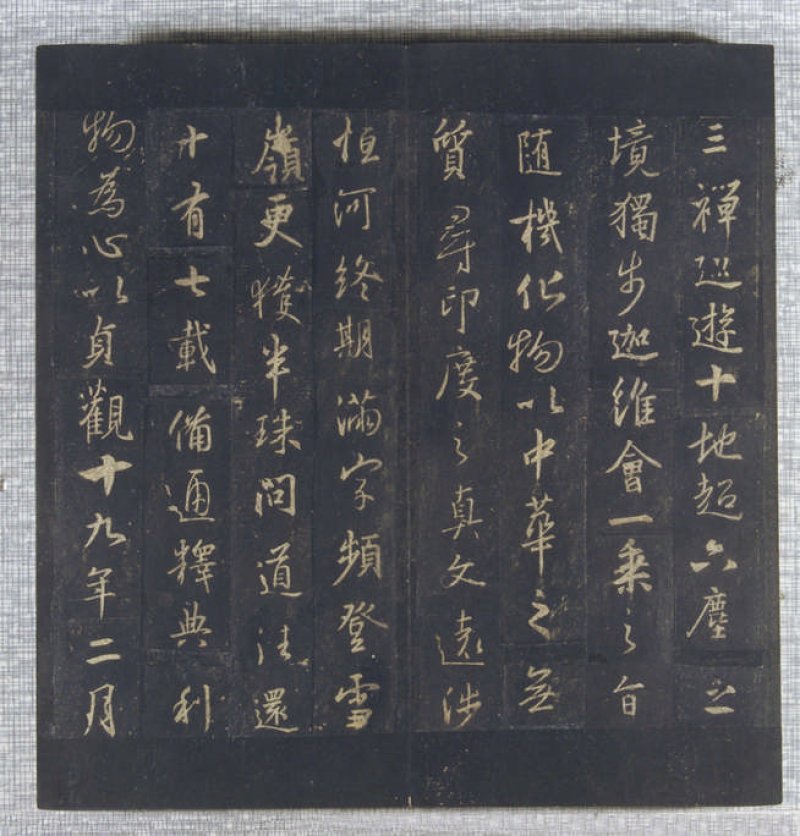 三禪巡遊十地超六塵之
境獨步迦維會一乘之旨
随機化物以中華之無
質尋印度之真文遠涉
恒河終期滿字頻登雪
嶺更獲半珠問道法還
十有七載備通釋典利
物為心以貞觀十九年二月